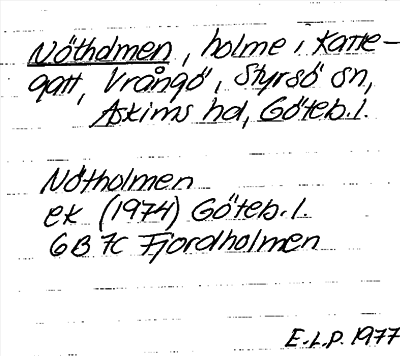 Nötholmen, holme i Katte-
gatt, Vrångö, Styrsö sn,
Askims hd, Göteb. l.
Nötholmen
ek (1974) Göteb. l.
6B 7c Fjordholmen
E.L.P. 1977